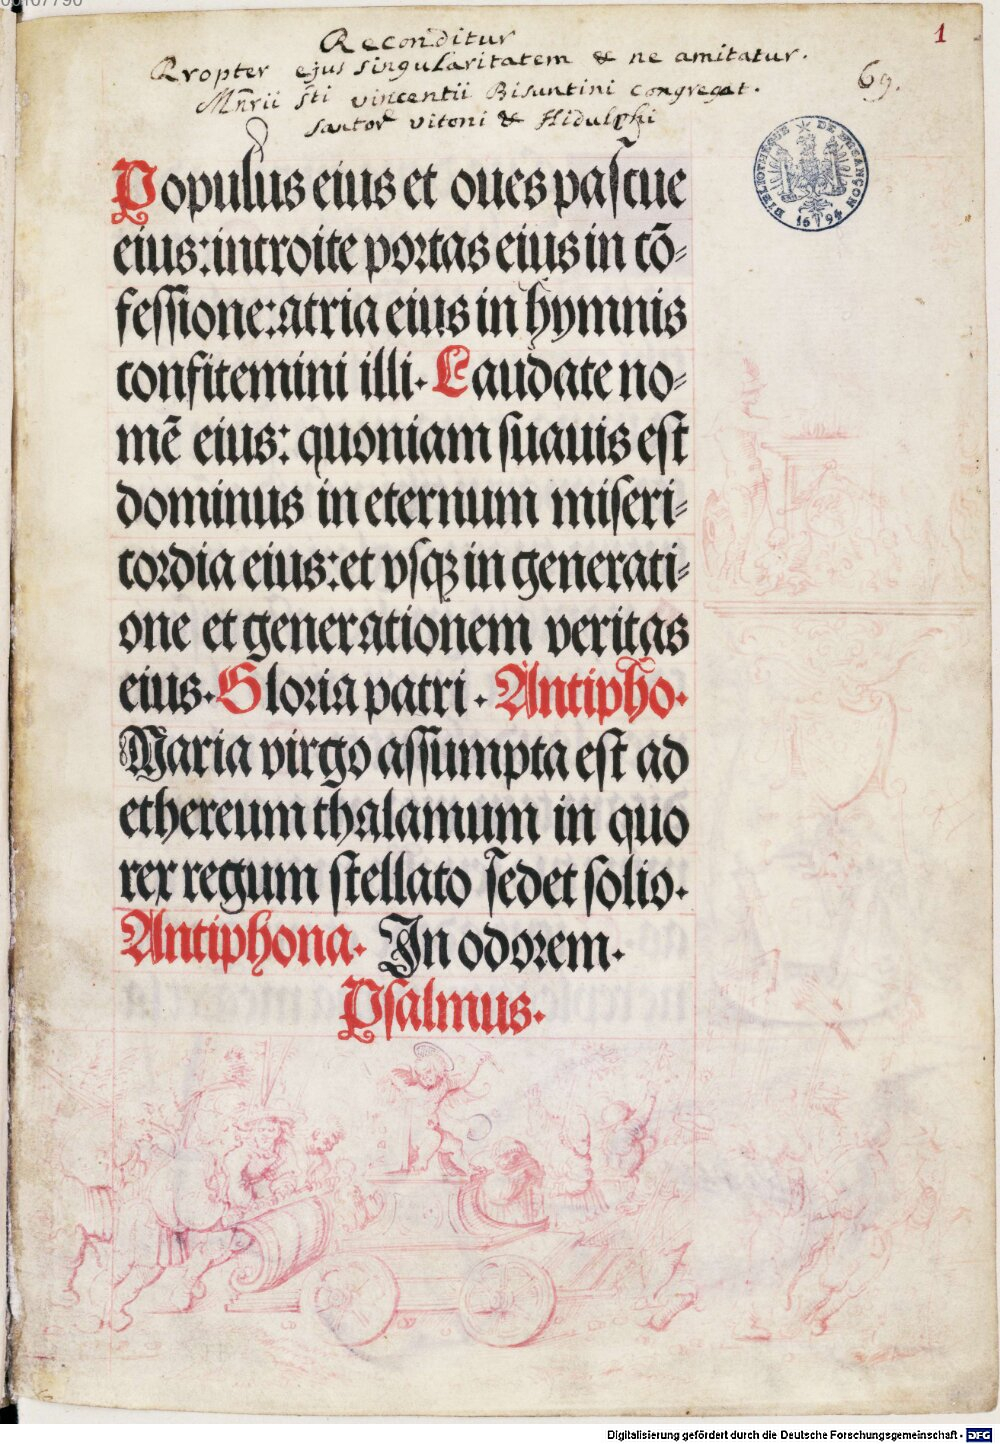 Reconditur
1
Propter ejus singularitatem & ne amitatur.
69.
Mñrii Sti vincentii Bisuntini Congregat.
sanctor vitoni & Hidulphi
BIBLIOTHEQUE DE BESANÇON
1694
Populus eius et oues pascue
eius: introite portas eius in cō-
fessione: atria eius in hymnis
confitemini illi. Laudate no-
mē eius: quoniam suauis est
dominus in eternum miseri-
cordia eius: et vsqꝫ in generati-
one et generationem veritas
eius. Gloria patri. Antipho.
Maria virgo assumpta est ad
ethereum thalamum in quo
rex regum stellato sedet solio.
Antiphona. In odorem.
Psalmus.
Digitalisierung gefördert durch die Deutsche Forschungsgemeinschaft - DFG